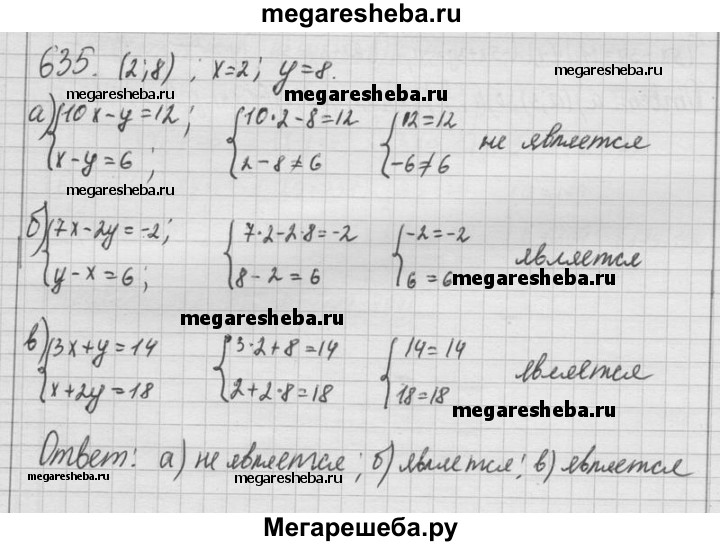 megaresheba.ru
635. (2;8) ; x=2; y=8.
megaresheba.ru
megaresheba.ru megaresheba.ru
а) {10x-y=12; {10·2-8=12 {12=12
x-y=6; 2-8≠6 -6≠6 не является
megaresheba.ru megaresheba.ru
б) {7x-2y=-2; {7·2-2·8=-2 {-2=-2
y-x=6; 8-2=6 6=6 является
megaresheba.ru
megaresheba.ru
в) {3x+y=14 {3·2+8=14 {14=14
x+2y=18 2+2·8=18 18=18 является
megaresheba.ru
Ответ: а) не является; б) является; в) является
megaresheba.ru megaresheba.ru
Мегарешеба.ру